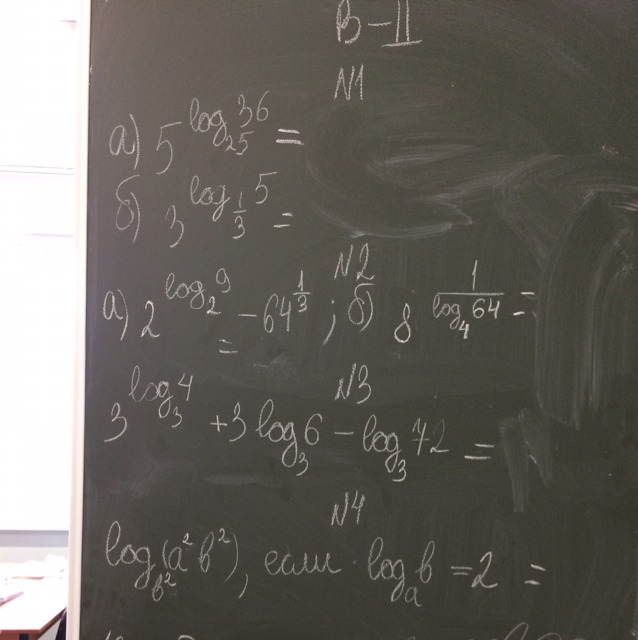 В-II
N1
а) 5^{log_{25} 36} =
б) 3^{log_{1/3} 5} =
N2
а) 2^{log_2 9} - 64^{1/3} = ; б) 8^{1/(log_4 64)} =
N3
3^{log_3 4} + 3 log_3 6 - log_3 72 =
N4
log_{b^2} (a^2 b^2), если log_a b = 2 =